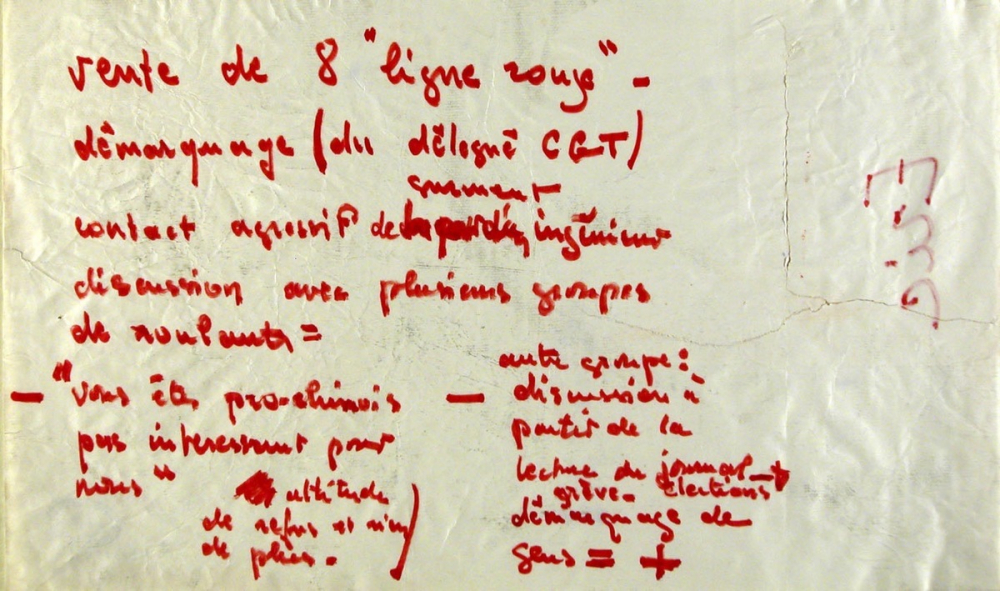 vente de 8 "ligne rouge" -
démarquage (du délégué CGT)
contact agressif de ingénieur
discussion avec plusieurs groupes
de roulants =
- "vous êtes pro-chinois
pas interessant pour
nous"
attitude
de refus et rien
de plus.)
- autre groupe :
discussion à
partir de la
lecture du journal →
grève - élections
démarquage de
gens = +